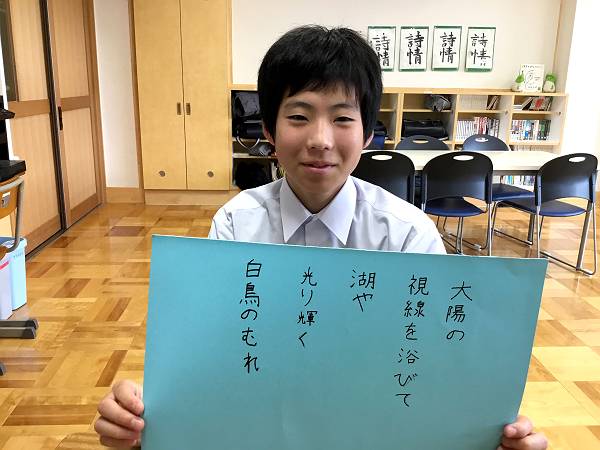 大陽の
視線を浴びて
湖や
光り輝く
白鳥のむれ
詩情
詩情
詩情
詩情